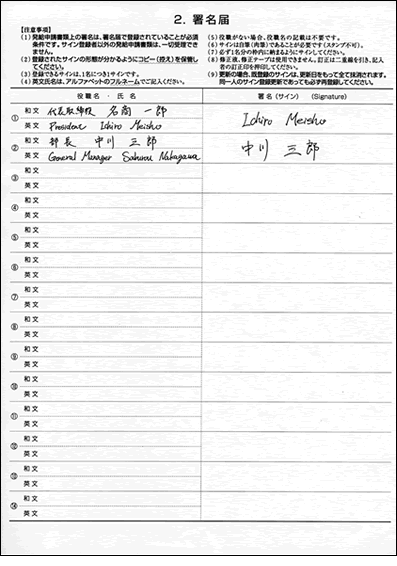 2. 署名届
【注意事項】
(1) 発給申請書類上の署名は、署名届で登録されていることが必須
条件です。サイン登録者以外の発給申請書類は、一切受理できま
せん。
(2) 登録されたサインの形態が分かるようにコピー(控え)を保管し
てください。
(3) 登録できるサインは、1名につき1サインです。
(4) 英文氏名は、アルファベットのフルネームでご記入ください。
(5) 役職がない場合、役職名の記載は不要です。
(6) サインは自筆(肉筆)であることが必要です(スタンプ不可)。
(7) 必ず1名分の枠内に納まるようにサインしてください。
(8) 修正液、修正テープは使用できません。訂正は二重線を引き、記入
者の訂正印を押印してください。
(9) 更新の場合、既登録のサインは、更新日をもって全て抹消されます。
同一人のサイン登録更新であっても必ず再登録してください。
役職名・氏名 署名(サイン) (Signature)
① 和文 代表取締役 名商 一郎 Ichiro Meisho
英文 President Ichiro Meisho
② 和文 部長 中川 三郎 中川 三郎
英文 General Manager Saburou Nakagawa
③ 和文
英文
④ 和文
英文
⑤ 和文
英文
⑥ 和文
英文
⑦ 和文
英文
⑧ 和文
英文
⑨ 和文
英文
⑩ 和文
英文
⑪ 和文
英文
⑫ 和文
英文
⑬ 和文
英文
⑭ 和文
英文